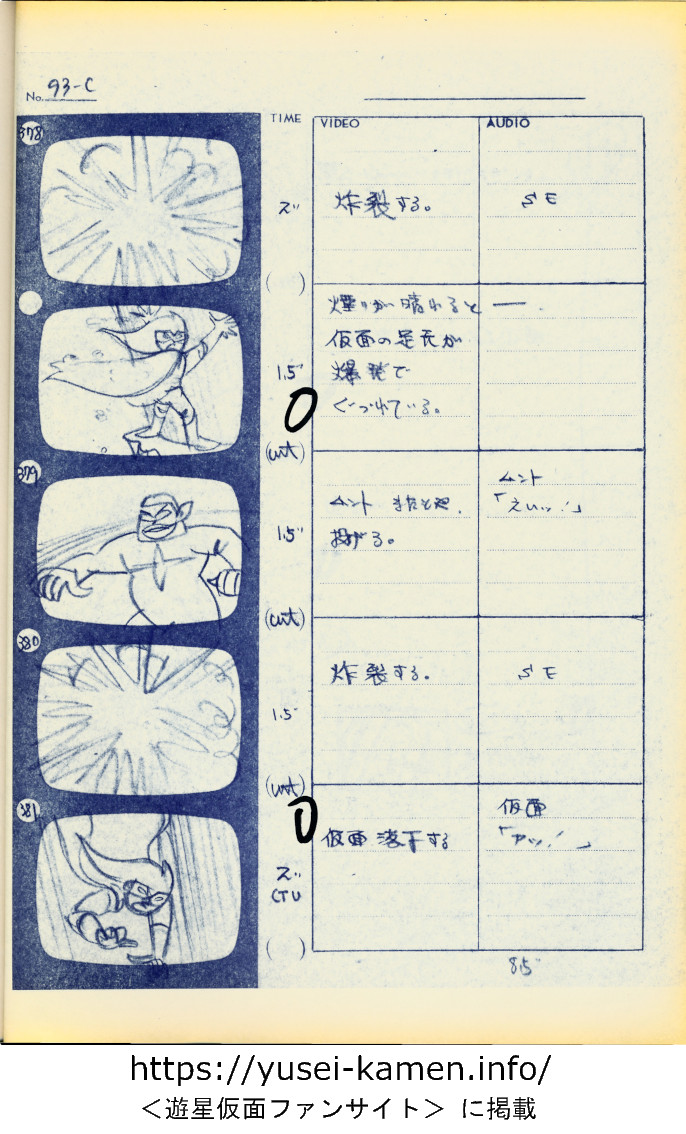 No. 93-C
TIME VIDEO AUDIO
378
2" 炸裂する。 SE
煙りが晴れると ー.
仮面の足元が
1.5" 爆発で
くづれている。
(cut)
379
ムント
1.5" ムント 「えいッ!」
投げる。
(cut)
380
炸裂する。 SE
1.5"
(cut)
381
仮面
仮面 落下する 「アッ!」
2"
CTU
85
https://yusei-kamen.info/
＜遊星仮面ファンサイト＞ に掲載